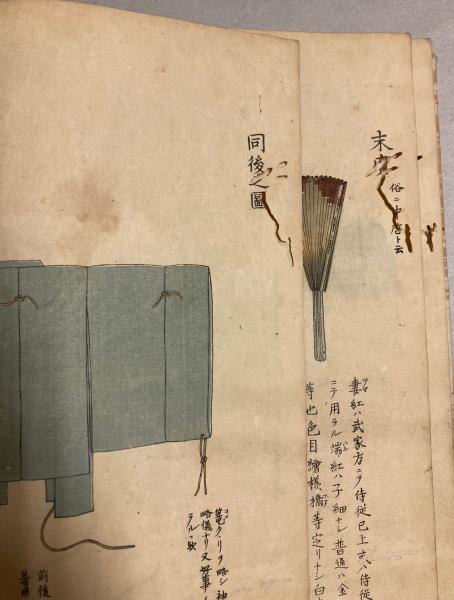 末
俗ニ中啓ト云
妻紅ハ武家方ニテ侍従已上或ハ侍従
ニテ用ラル端紅ハ子細ナシ普通ハ金
等也色目繪様橋等定リナシ白
同後之圖
籠クヽリヲ略シ神
略儀ナリ又好事
ラルヽ歟
前後
着用